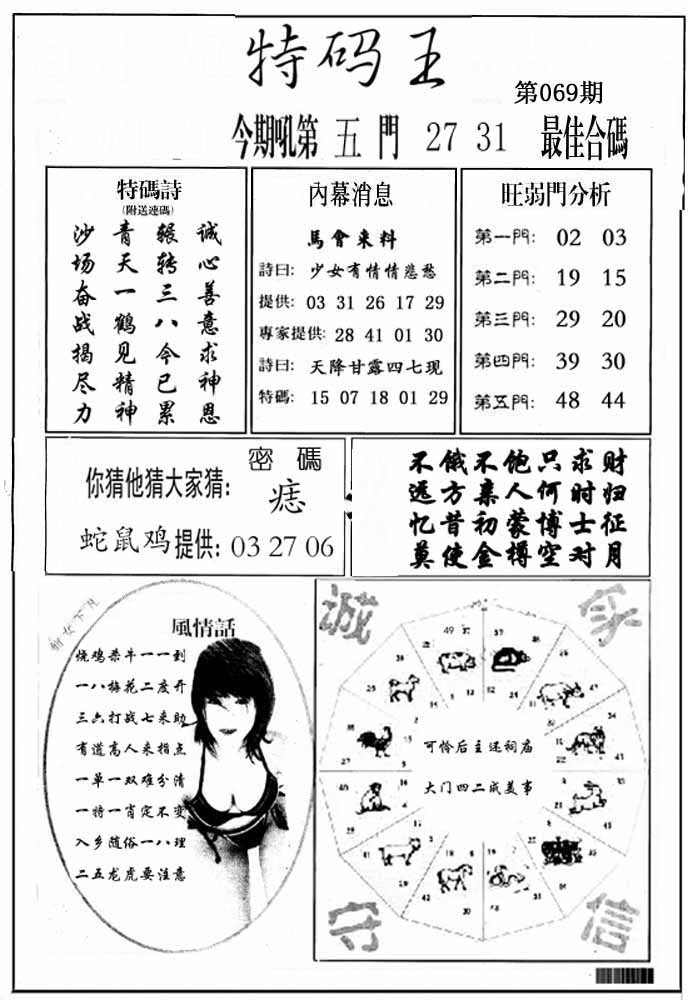 特码王
第069期
今期吼第 五 門 27 31 最佳合碼
特碼詩
(附送連碼)
诚心善意求神恩
辗转三八今已累
青天一鹤见精神
沙场奋战揭尽力
內幕消息
馬會来料
詩曰: 少女有情情悲愁
提供: 03 31 26 17 29
專家提供: 28 41 01 30
詩曰: 天降甘露四七现
特碼: 15 07 18 01 29
旺弱門分析
第一門: 02 03
第二門: 19 15
第三門: 29 20
第四門: 39 30
第五門: 48 44
密碼
你猜他猜大家猜: 痣
蛇鼠鸡提供: 03 27 06
不饿不饱只求财
远方亲人何时归
忆昔初蒙博士征
莫使金樽空对月
風情話
烧鸡杀牛一一到
一八梅花二度开
三六打战七来助
有道高人来指点
一单一双难分清
一特一肖定不变
入乡随俗一八理
二五龙虎要注意
诚
守
信
49 37
可怜后主还祠庙
大门四二成美事